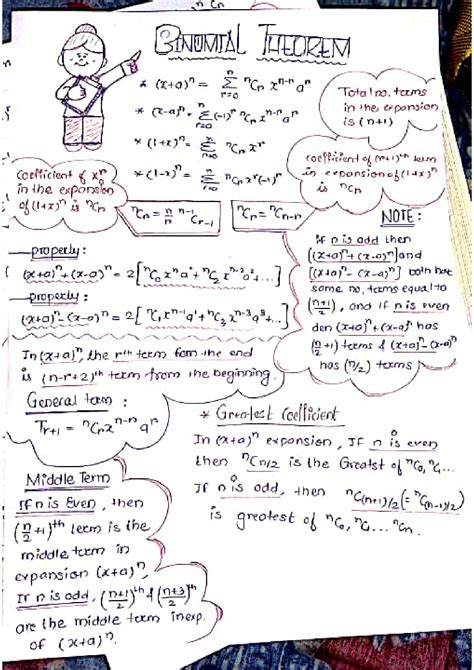 BINOMIAL THEOREM
* (x+a)ⁿ = Σⁿᵣ₌₀ ⁿCᵣ xⁿ⁻ʳ aʳ
* (x-a)ⁿ = Σⁿᵣ₌₀ (-1)ʳ ⁿCᵣ xⁿ⁻ʳ aʳ
* (1+x)ⁿ = Σⁿᵣ₌₀ ⁿCᵣ xʳ
* (1-x)ⁿ = Σⁿᵣ₌₀ ⁿCᵣ xʳ(-1)ʳ
Total no. terms
in the expansion
is (n+1)
coefficient of (r+1)ᵗʰ term
in expansion of (1+x)ⁿ
is ⁿCᵣ
coefficient of xʳ
in the expansion
of (1+x)ⁿ is ⁿCᵣ
ⁿCᵣ = n/r ⁿ⁻¹Cᵣ₋₁
ⁿCᵣ = ⁿCₙ₋ᵣ
property:
(x+a)ⁿ+(x-a)ⁿ = 2[ⁿC₀xⁿa⁰+ⁿC₂xⁿ⁻²a²+...]
property:
(x+a)ⁿ-(x-a)ⁿ = 2[ⁿC₁xⁿ⁻¹a¹+ⁿC₃xⁿ⁻³a³+...]
NOTE:
if n is odd then
[(x+a)ⁿ+(x-a)ⁿ] and
[(x+a)ⁿ-(x-a)ⁿ] both has
same no. terms equal to
(n+1/2), and if n is even
den (x+a)ⁿ+(x-a)ⁿ has
(n/2+1) terms & (x+a)ⁿ-(x-a)ⁿ
has (n/2) terms
In (x+a)ⁿ, the rᵗʰ term from the end
is (n-r+2)ᵗʰ term from the beginning.
General term:
Tᵣ₊₁ = ⁿCᵣ xⁿ⁻ʳ aʳ
* Greatest Coefficient
In (x+a)ⁿ expansion, If n is even
then ⁿCₙ/₂ is the Greatst of ⁿC₀, ⁿC₁...
If n is odd, then ⁿC₍ₙ₊₁₎/₂(=ⁿC₍ₙ₋₁₎/₂)
is greatest of ⁿC₀, ⁿC₁... ⁿCₙ.
Middle Term
If n is Even, then
(n/2+1)ᵗʰ term is the
middle term in
expansion (x+a)ⁿ,
If n is odd, (n+1/2)ᵗʰ & (n+3/2)ᵗʰ
are the middle term in exp.
of (x+a)ⁿ.